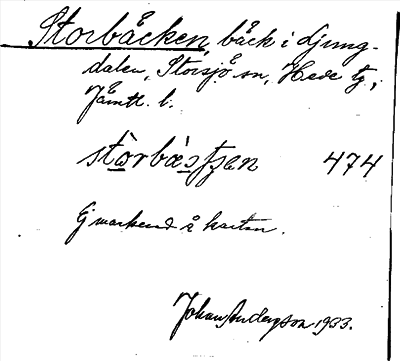 Storbäcken, bäck i Ljung-
dalen, Storsjö sn, Hede tg,
Jämtl. l.
stòrbæ̀ɔʃʒen 474
Ej markerad å kartan.
Johan Anderson 1933.